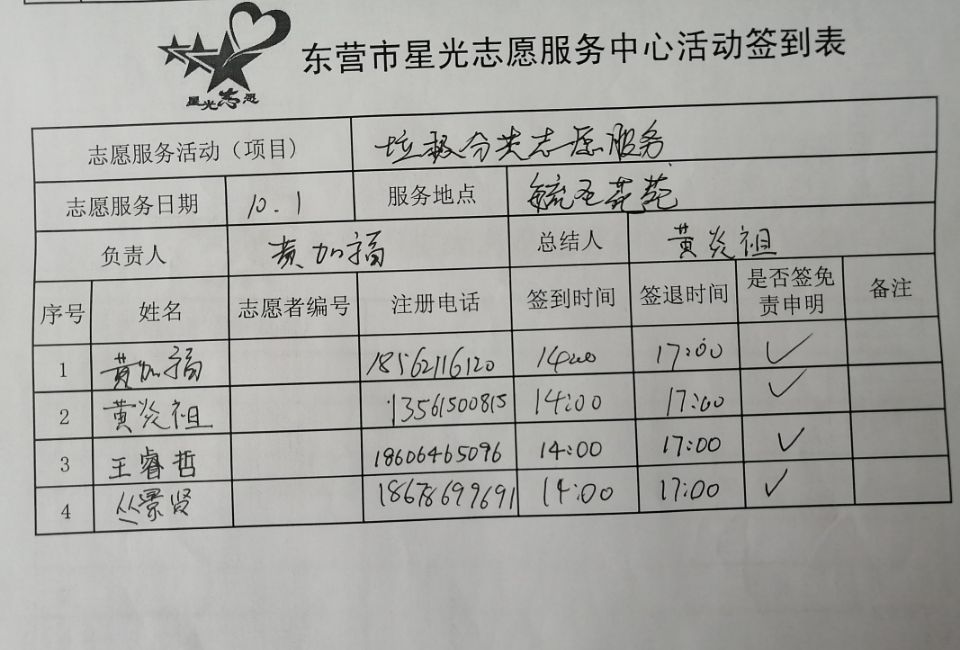 星光志愿
东营市星光志愿服务中心活动签到表
志愿服务活动（项目） 垃圾分类志愿服务
志愿服务日期 10.1 服务地点 毓圣花苑
负责人 黄加福 总结人 黄炎祖
序号 姓名 志愿者编号 注册电话 签到时间 签退时间 是否签免责申明 备注
1 黄加福 18562116120 14:00 17:00 ✓
2 黄炎祖 13561500815 14:00 17:00 ✓
3 王睿哲 18606465096 14:00 17:00 ✓
4 丛景贤 18678699691 14:00 17:00 ✓